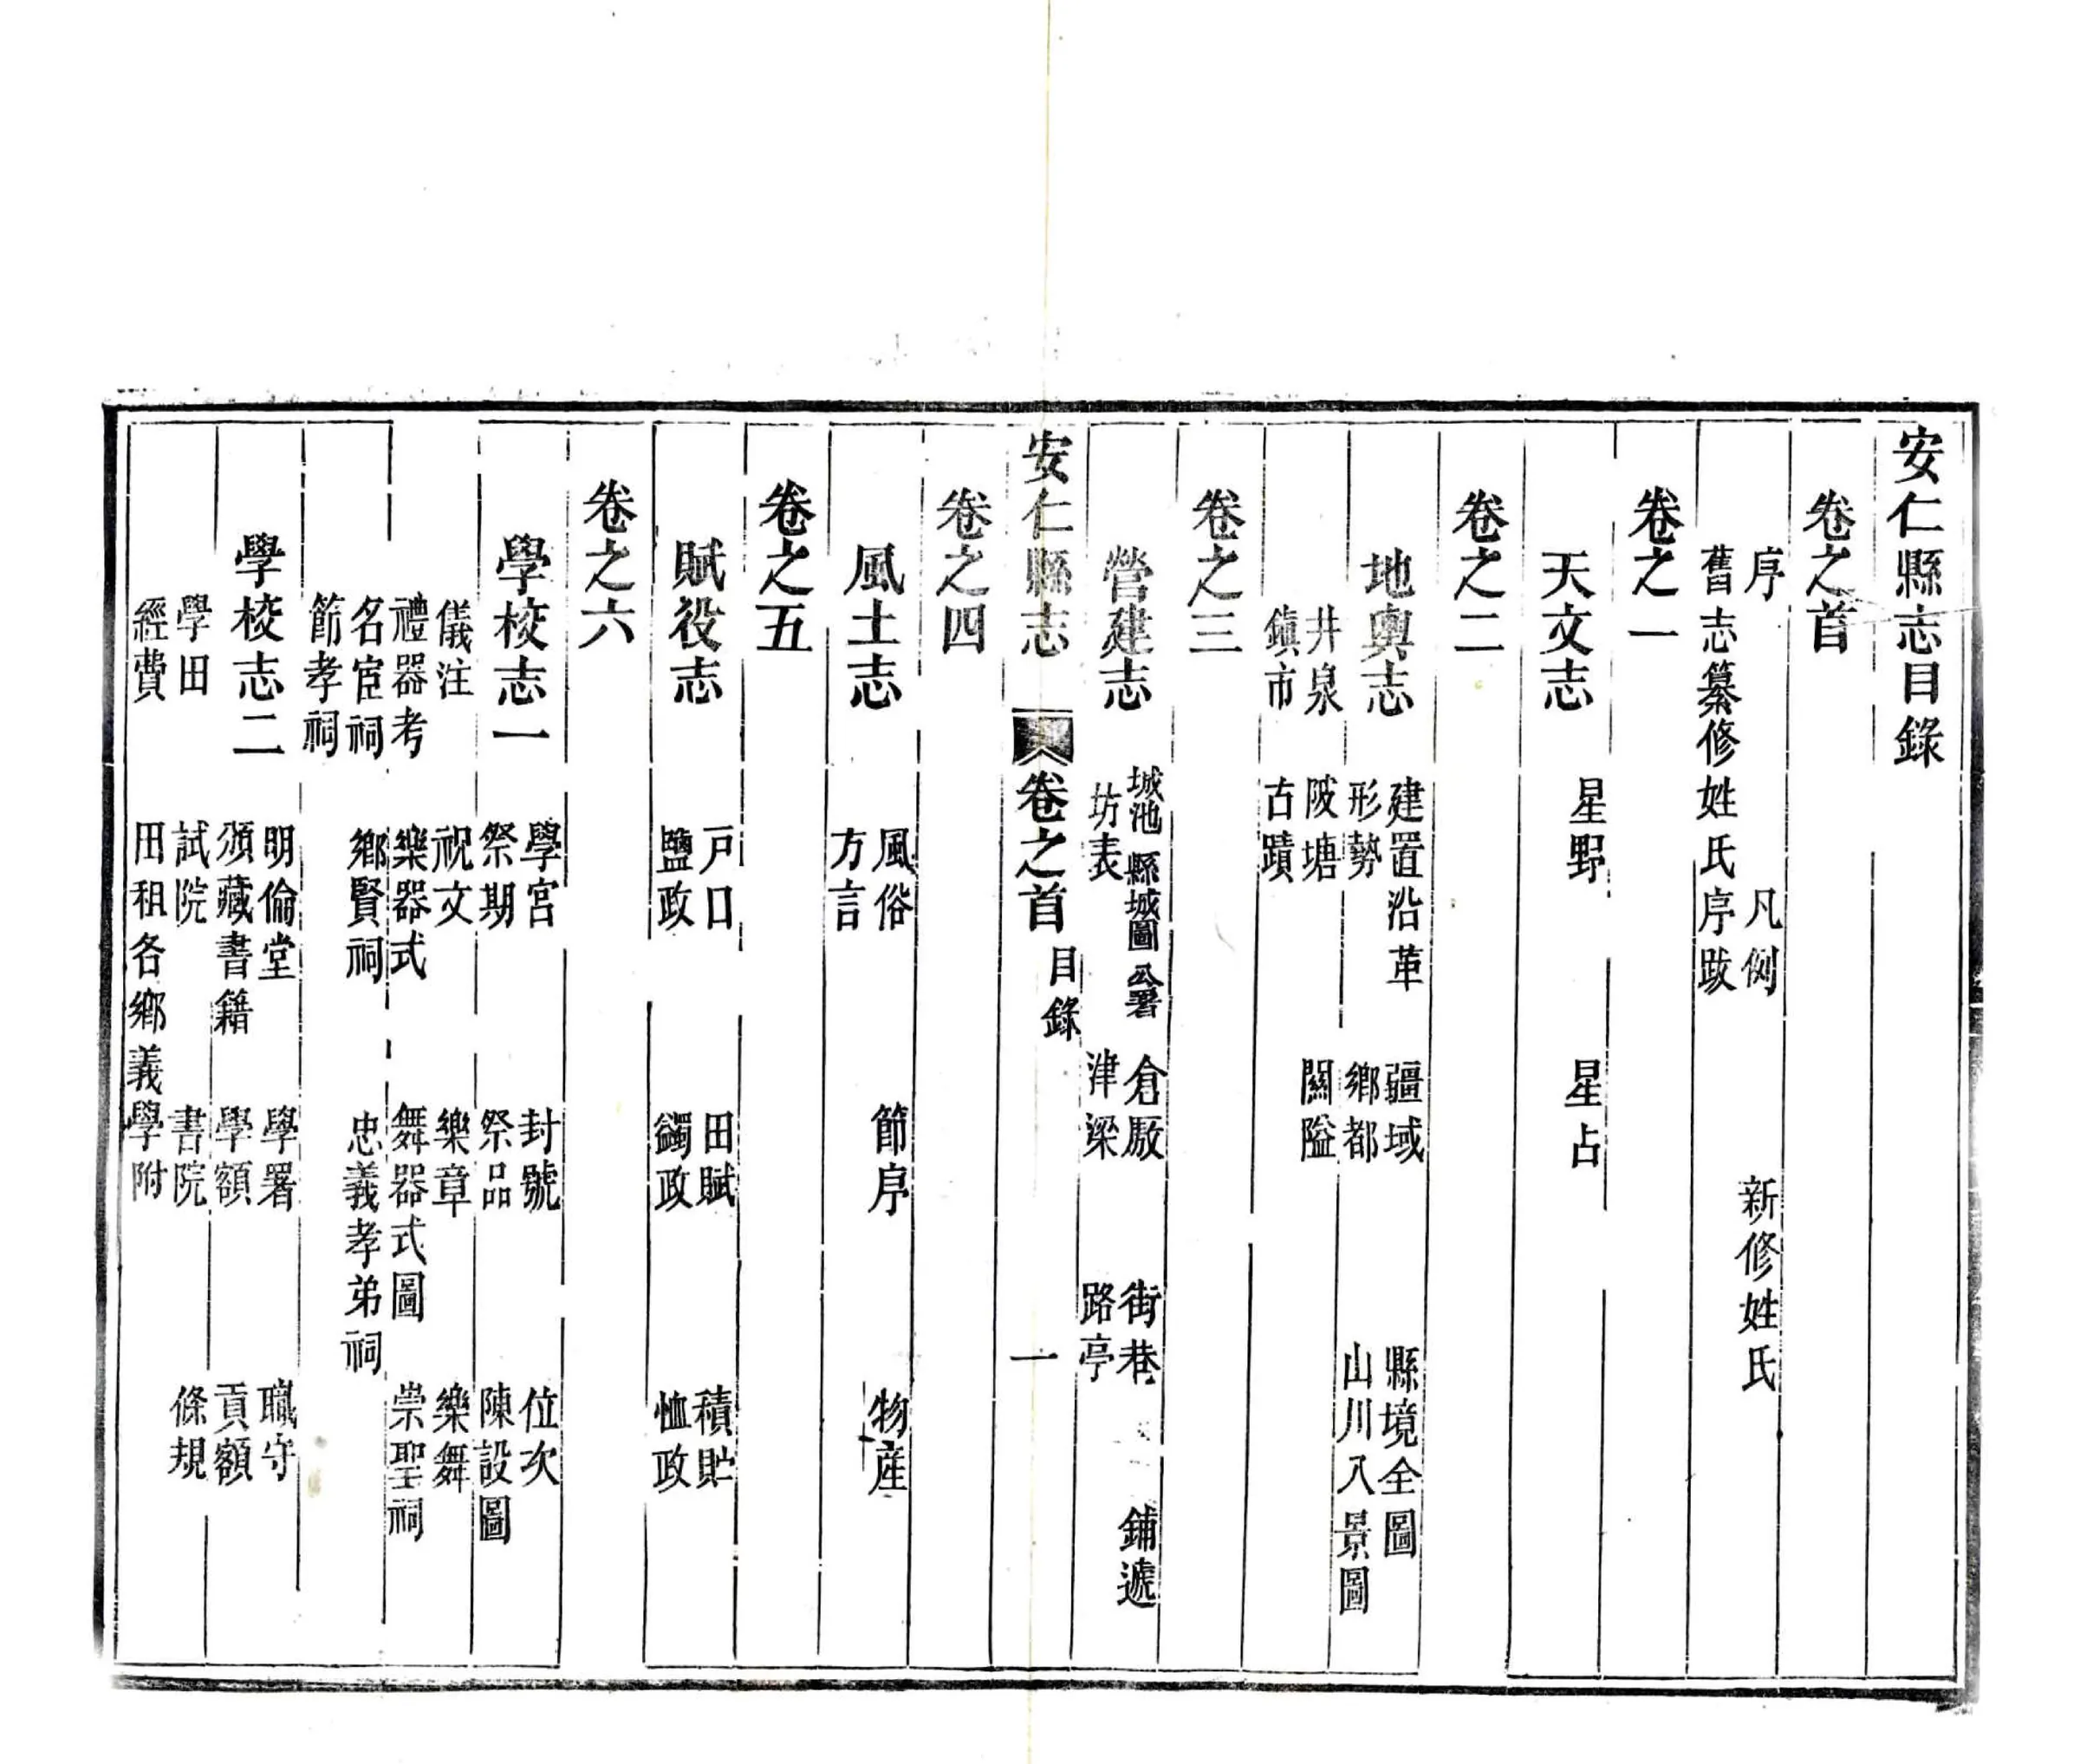 安仁縣志目錄
卷之首
序 凡例 新修姓氏
舊志纂修姓氏序跋
卷之一
天文志 星野 星占
卷之二
地輿志 建置沿革 疆域 縣境全圖
形勢 鄉都 山川八景圖
井泉 陂塘 關隘
鎮市 古蹟
卷之三
營建志 城池 縣城圖 公署 倉厫 街巷 鋪遞
坊表 津梁 路亭
安仁縣志 卷之首 目錄 一
卷之四
風土志 風俗 節序 物産
方言
卷之五
賦役志 戸口 田賦 積貯
鹽政 蠲政 恤政
卷之六
學校志一 學宮 封號 位次
祭期 祭品 陳設圖
儀注 祝文 樂章 樂舞
禮器考 樂器式 舞器式圖 崇聖祠
名宦祠 鄉賢祠 忠義孝弟祠
節孝祠
學校志二 明倫堂 學署 職守
頒藏書籍 學額 貢額
學田 試院 書院 條規
經費 田租各鄉義學附